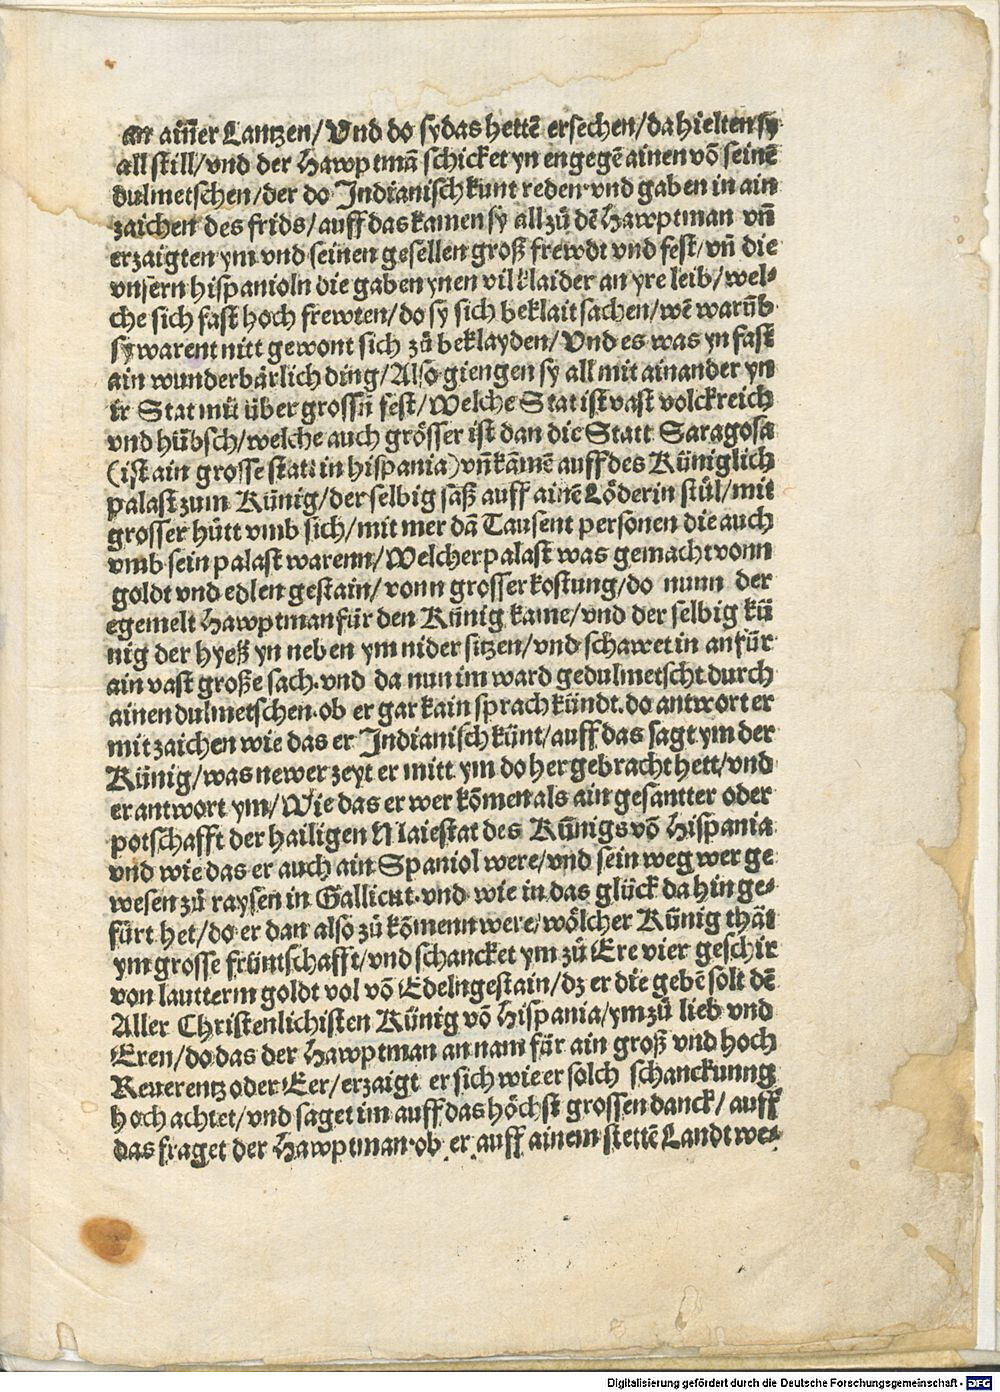 an ainer Lantzen/Vnd do sy das hettē ersechen/da hielten sy
all still/vnd der Hawptmā schicket yn engegē ainen vō seinē
dulmetschen/der do Indianisch kunt reden·vnd gaben in ain
zaichen des frids/auff das kamen sy all zů dē Hawptman vn̄
erzaigten ym vnd seinen gesellen groß frewdt vnd fest/vn̄ die
vnsern hispanioln die gaben ynen vil klaider an yre leib/wel⸗
che sich fast hoch frewten/do sy sich beklait sachen/wē warūb
sy warent nitt gewont sich zů beklayden/Vnd es was yn fast
ain wunderbärlich ding/Also giengen sy all mit ainander yn
ir Stat mit über grossn̄ fest/Welche Stat ist vast volckreich
vnd hübsch/welche auch grösser ist dan die Statt Saragosa
(ist ain grosse statt in hispania) vn̄ kāmē auff des Küniglich
palast zum Künig/der selbig saß auff ainē Löderin stůl/mit
grosser hůtt vmb sich/mit mer dā Tausent personen die auch
vmb sein palast warenn/Welcher palast was gemacht vonn
goldt vnd edlen gestain/vonn grosser kostung/do nunn der
egemelt Hawptman für den Künig kame/vnd der selbig kü
nig der hyeß yn neben ym nider sitzen/vnd schawet in an für
ain vast große sach·vnd da nun im ward gedulmetscht durch
ainen dulmetschen·ob er gar kain sprach kündt·do antwort er
mit zaichen wie das er Indianisch künt/auff das sagt ym der
Künig/was newer zeyt er mitt ym do her gebracht hett/vnd
er antwort ym/Wie das er wer kōmen als ain gesantter oder
potschafft der hailigen Maiestat des Künigs vō Hispania
vnd wie das er auch ain Spaniol were/vnd sein weg wer ge
wesen zů raysen in Gallicut·vnd wie in das glück da hin ge⸗
fürt het/do er dan also zů kōmenn were/wölcher Künig thät
ym grosse früntschafft/vnd schancket ym zů Ere vier geschir
von lautterm goldt vol vō Edelngestain/dz er die gebē solt dē
Aller Christenlichisten Künig vō Hispania/ym zů lieb vnd
Eren/do das der Hawptman an nam für ain groß vnd hoch
Reuerentz oder Eer/erzaigt er sich wie er solch schanckunng
hoch achtet/vnd saget im auff das höchst grossen danck/auff
das fraget der Hawptman·ob er auff ainem stettē Landt we⸗
Digitalisierung gefördert durch die Deutsche Forschungsgemeinschaft - DFG